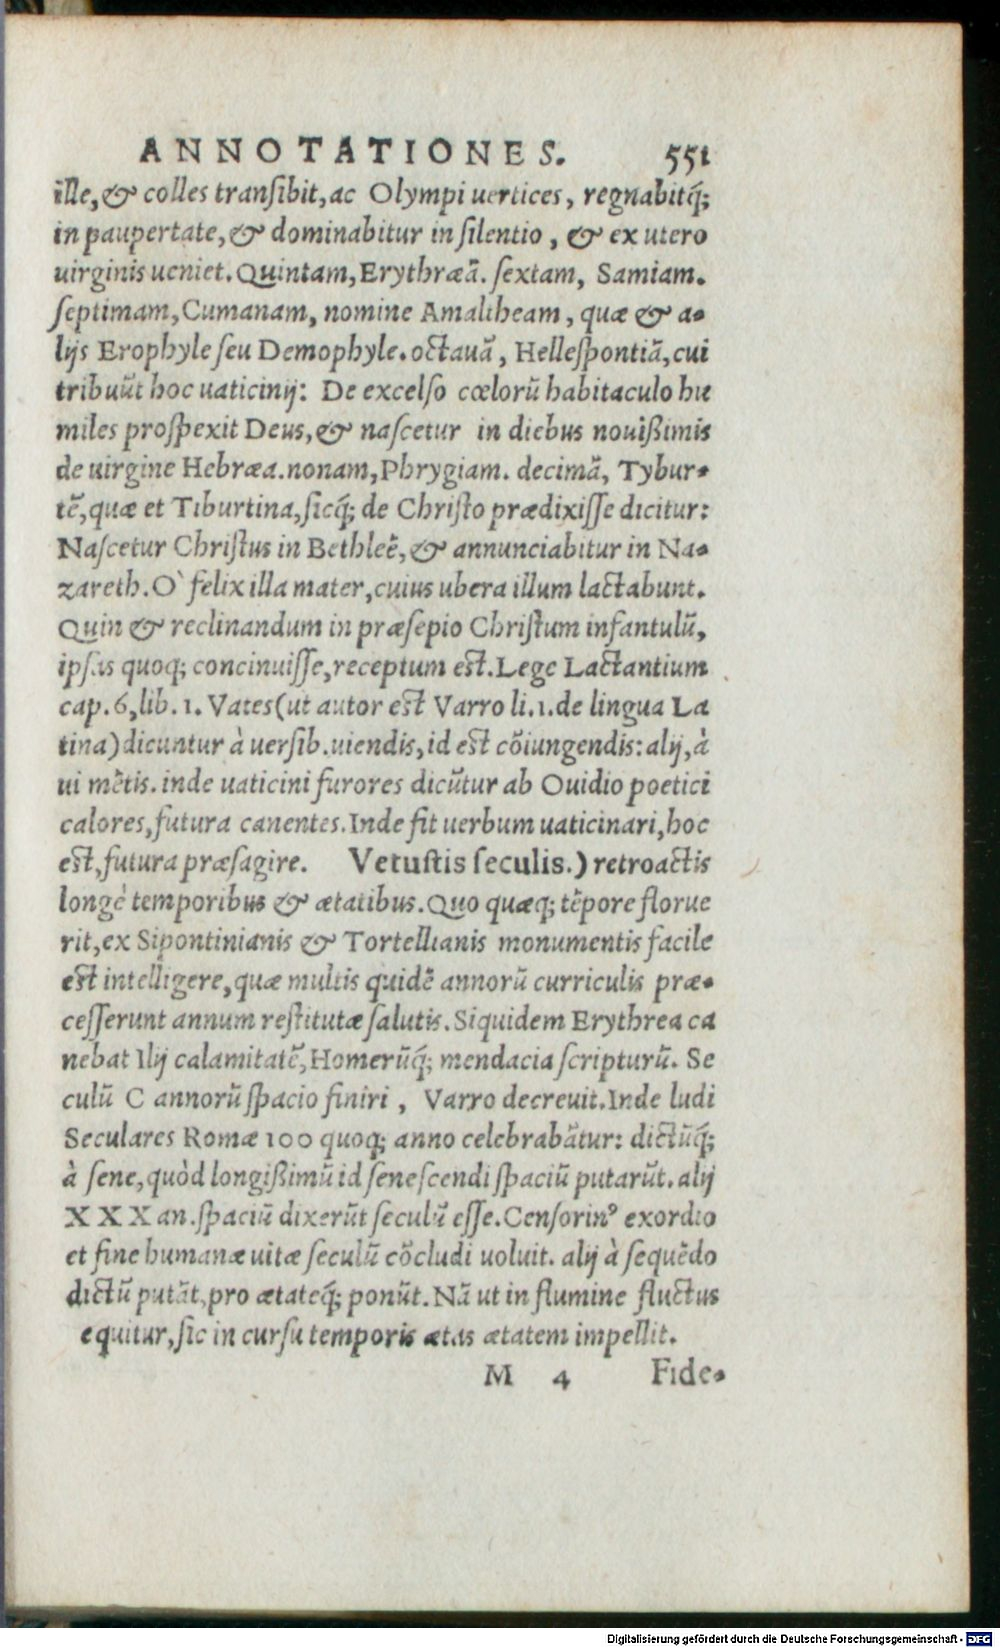 ANNOTATIONES. 551
ille, & colles transibit, ac Olympi uertices, regnabitq́;
in paupertate, & dominabitur in silentio, & ex utero
uirginis ueniet. Quintam, Erythræā. sextam, Samiam.
septimam, Cumanam, nomine Amaltheam, quæ & a-
lijs Erophyle seu Demophyle. octauā, Hellespontiā, cui
tribuūt hoc uaticinij: De excelso cœlorū habitaculo hu
miles prospexit Deus, & nascetur in diebus nouißimis
de uirgine Hebræa. nonam, Phrygiam. decimā, Tybur-
tē, quæ et Tiburtina, sicq́; de Christo prædixisse dicitur:
Nascetur Christus in Bethleē, & annunciabitur in Na-
zareth. O` felix illa mater, cuius ubera illum lactabunt.
Quin & reclinandum in præsepio Christum infantulū,
ipsas quoq; concinuisse, receptum est. Lege Lactantium
cap. 6, lib. 1. Vates (ut autor est Varro li. 1. de lingua La
tina) dicuntur à uersib. uiendis, id est cōiungendis: alij, à
ui mētis. inde uaticini furores dicūtur ab Ouidio poetici
calores, futura canentes. Inde fit uerbum uaticinari, hoc
est, futura præsagire. Vetustis seculis.) retroactis
longè temporibus & ætatibus. Quo quæq; tēpore florue
rit, ex Sipontinianis & Tortellianis monumentis facile
est intelligere, quæ multis quidē annorū curriculis præ-
cesserunt annum restitutæ salutis. Siquidem Erythrea ca
nebat Ilij calamitatē, Homerūq́; mendacia scripturū. Se
culū C annorū spacio finiri, Varro decreuit. Inde ludi
Seculares Romæ 100 quoq; anno celebrabātur: dictūq́;
à sene, quòd longißimū id senescendi spaciū putarūt. alij
XXX an. spaciū dixerūt seculū esse. Censorin⁹ exordio
et fine humanæ uitæ seculū cōcludi uoluit. alij à sequēdo
dictū putāt, pro ætateq́; ponūt. Nā ut in flumine fluctus
equitur, sic in cursu temporis ætas ætatem impellit.
M 4 Fide-
Digitalisierung gefördert durch die Deutsche Forschungsgemeinschaft - DFG